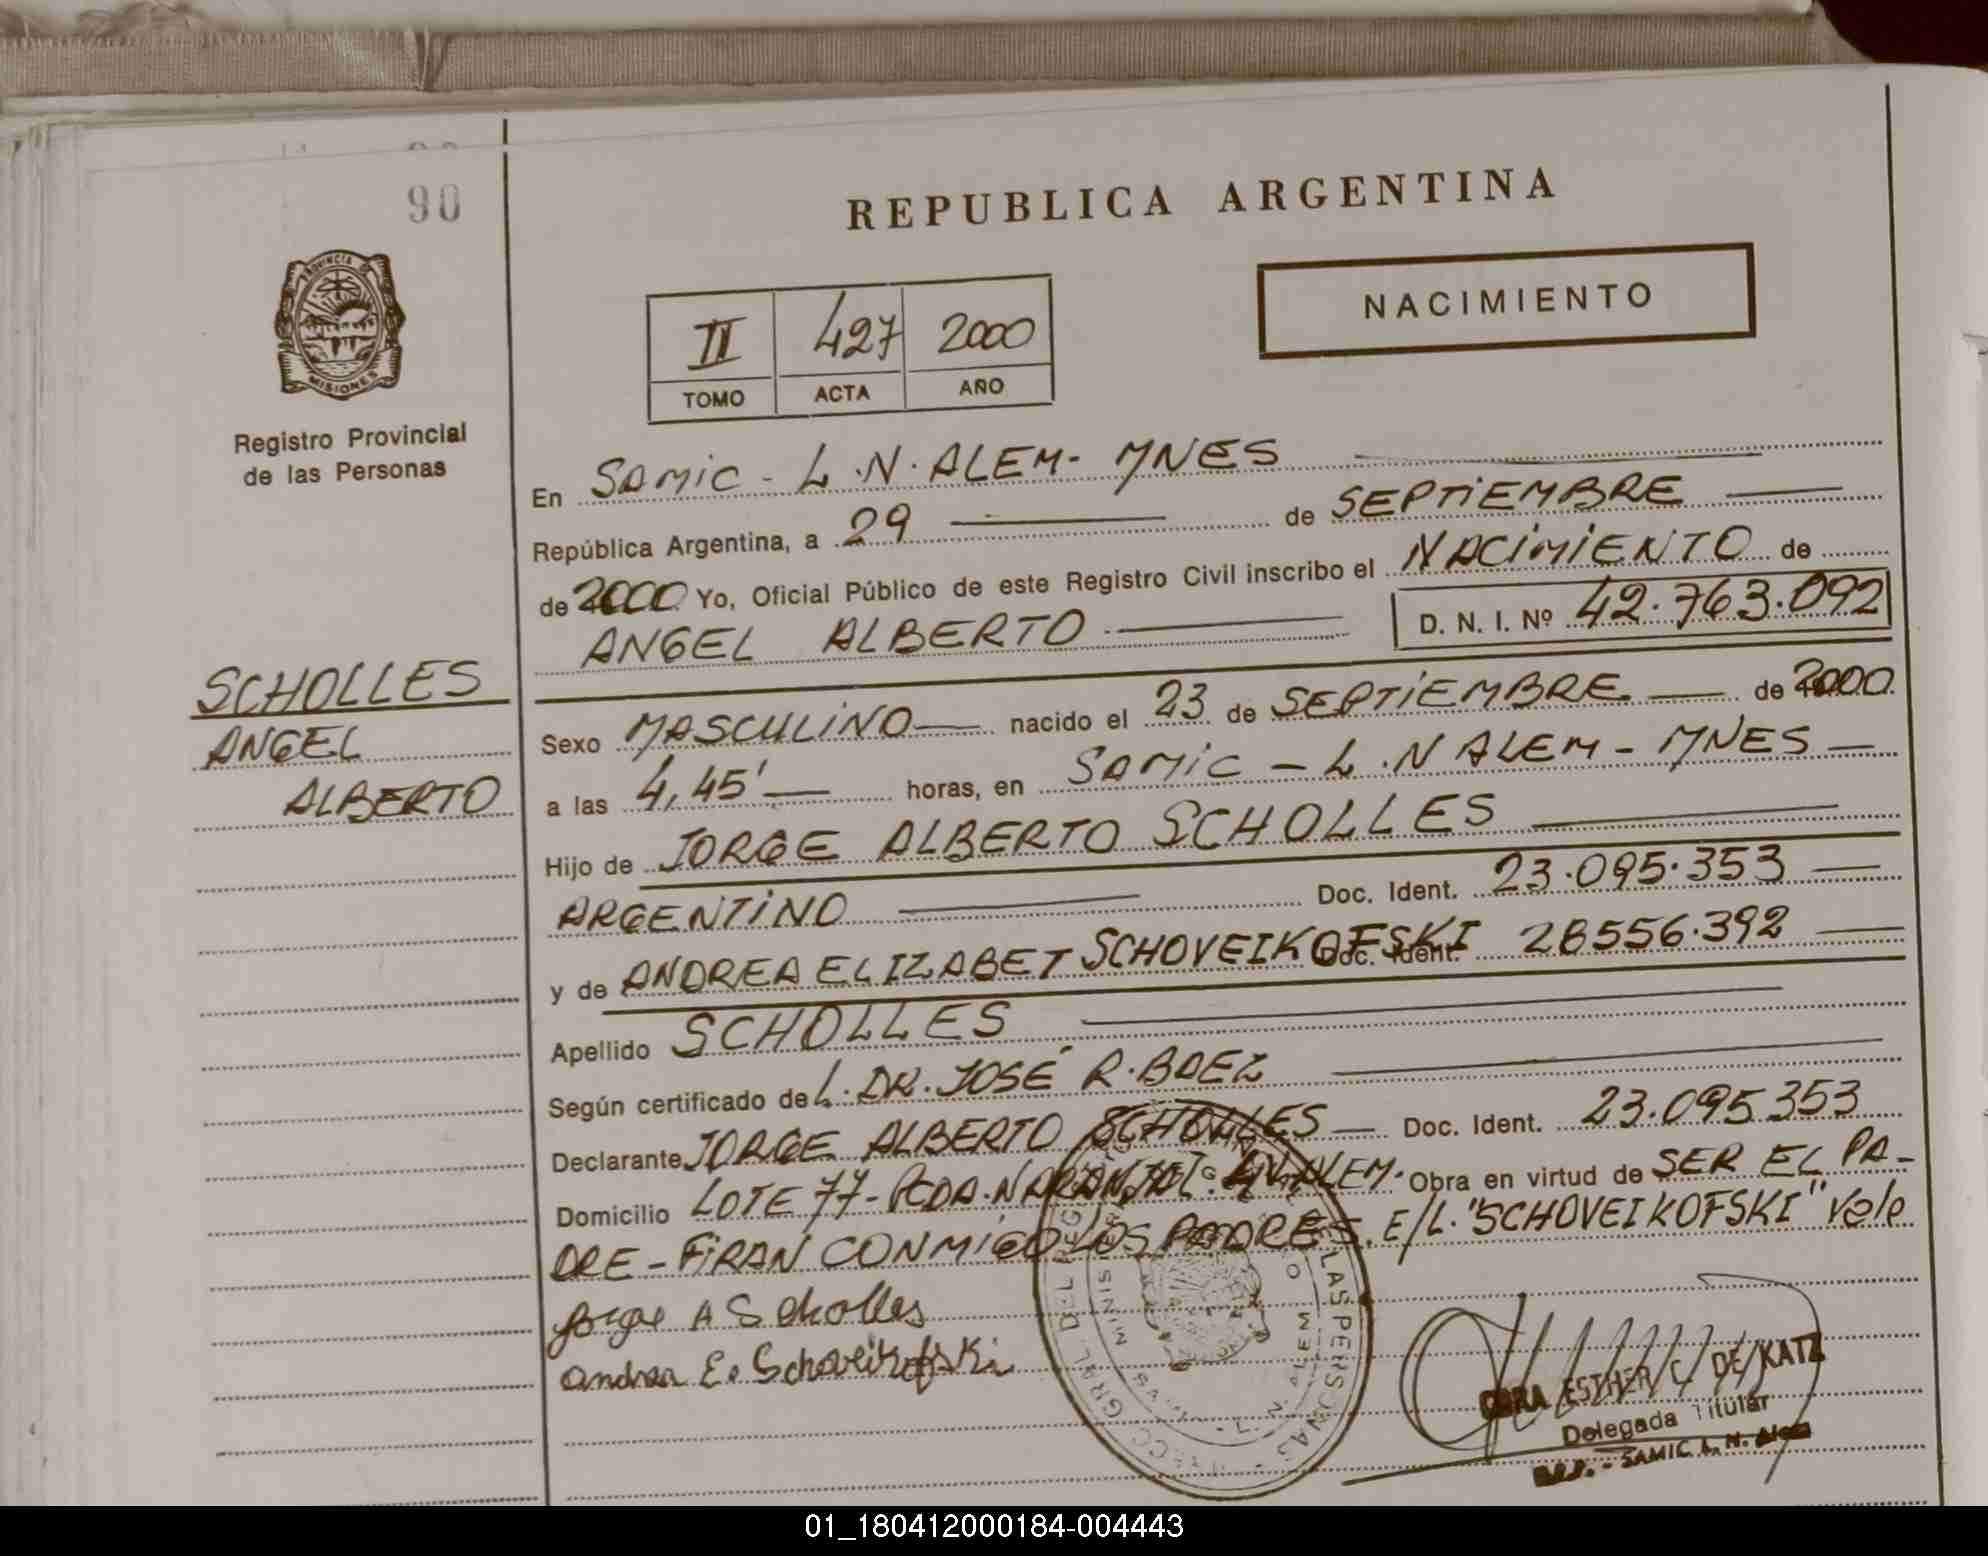 90
REPUBLICA ARGENTINA
PROVINCIA DE
MISIONES
NACIMIENTO
II 427 2000
TOMO ACTA AÑO
Registro Provincial
de las Personas
En SAMIC - L.N. ALEM - MNES
República Argentina, a 29 de SEPTIEMBRE
de 2000 Yo, Oficial Público de este Registro Civil inscribo el NACIMIENTO de
ANGEL ALBERTO D. N. I. Nº 42.763.092
SCHOLLES
ANGEL
ALBERTO
Sexo MASCULINO nacido el 23 de SEPTIEMBRE de 2000
a las 4,45' horas, en SAMIC - L.N ALEM - MNES
Hijo de JORGE ALBERTO SCHOLLES
ARGENTINO Doc. Ident. 23.095.353
y de ANDREA ELIZABET SCHOVEIKOFSKI Doc. Ident. 28556.392
Apellido SCHOLLES
Según certificado de L. DR. JOSÉ R. BAEZ
Declarante JORGE ALBERTO SCHOLLES Doc. Ident. 23.095.353
Domicilio LOTE 77 - PCDA. NARANJAL. L.N. ALEM. Obra en virtud de SER EL PA-
DRE - FIRAN CONMIGO LOS PADRES. E/L. "SCHOVEIKOFSKI" Vale
Jorge A Scholles
Andrea E. Schoveikofski
LAS PERSONAS
ESTHER C. DE KATZ
Delegada Titular
SAMIC L. N. Alem
01_180412000184-004443